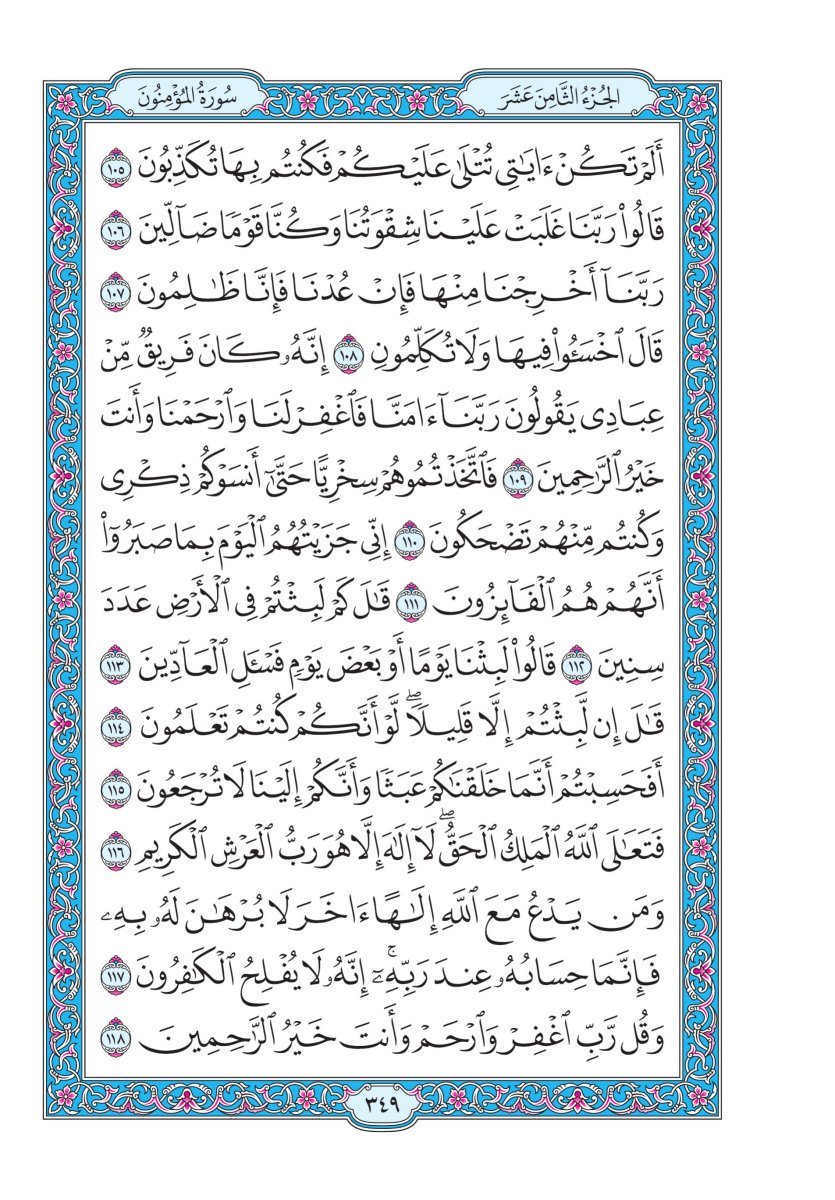 الجُزْءُ الثَّامِنَ عَشَرَ
سُورَةُ المُؤْمِنُونَ
أَلَمْ تَكُنْ ءَايَٰتِي تُتْلَىٰ عَلَيْكُمْ فَكُنتُم بِهَا تُكَذِّبُونَ ١٠٥
قَالُوا۟ رَبَّنَا غَلَبَتْ عَلَيْنَا شِقْوَتُنَا وَكُنَّا قَوْمًا ضَآلِّينَ ١٠٦
رَبَّنَآ أَخْرِجْنَا مِنْهَا فَإِنْ عُدْنَا فَإِنَّا ظَٰلِمُونَ ١٠٧
قَالَ ٱخْسَـُٔوا۟ فِيهَا وَلَا تُكَلِّمُونِ ١٠٨ إِنَّهُۥ كَانَ فَرِيقٌ مِّنْ
عِبَادِى يَقُولُونَ رَبَّنَآ ءَامَنَّا فَٱغْفِرْ لَنَا وَٱرْحَمْنَا وَأَنتَ
خَيْرُ ٱلرَّٰحِمِينَ ١٠٩ فَٱتَّخَذْتُمُوهُمْ سِخْرِيًّا حَتَّىٰٓ أَنسَوْكُمْ ذِكْرِى
وَكُنتُم مِّنْهُمْ تَضْحَكُونَ ١١٠ إِنِّى جَزَيْتُهُمُ ٱلْيَوْمَ بِمَا صَبَرُوٓا۟
أَنَّهُمْ هُمُ ٱلْفَآئِزُونَ ١١١ قَٰلَ كَمْ لَبِثْتُمْ فِى ٱلْأَرْضِ عَدَدَ
سِنِينَ ١١٢ قَالُوا۟ لَبِثْنَا يَوْمًا أَوْ بَعْضَ يَوْمٍ فَسْـَٔلِ ٱلْعَآدِّينَ ١١٣
قَٰلَ إِن لَّبِثْتُمْ إِلَّا قَلِيلًا ۖ لَّوْ أَنَّكُمْ كُنتُمْ تَعْلَمُونَ ١١٤
أَفَحَسِبْتُمْ أَنَّمَا خَلَقْنَٰكُمْ عَبَثًا وَأَنَّكُمْ إِلَيْنَا لَا تُرْجَعُونَ ١١٥
فَتَعَٰلَى ٱللَّهُ ٱلْمَلِكُ ٱلْحَقُّ ۖ لَآ إِلَٰهَ إِلَّا هُوَ رَبُّ ٱلْعَرْشِ ٱلْكَرِيمِ ١١٦
وَمَن يَدْعُ مَعَ ٱللَّهِ إِلَٰهًا ءَاخَرَ لَا بُرْهَٰنَ لَهُۥ بِهِۦ
فَإِنَّمَا حِسَابُهُۥ عِندَ رَبِّهِۦٓ ۚ إِنَّهُۥ لَا يُفْلِحُ ٱلْكَٰفِرُونَ ١١٧
وَقُل رَّبِّ ٱغْفِرْ وَٱرْحَمْ وَأَنتَ خَيْرُ ٱلرَّٰحِمِينَ ١١٨
٣٤٩